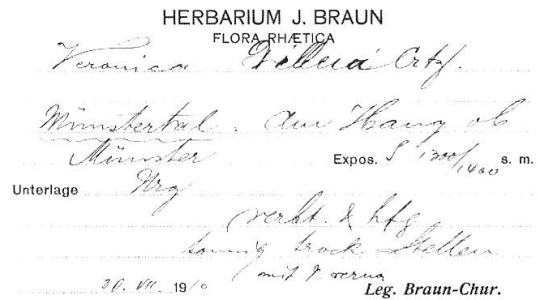 HERBARIUM J. BRAUN
FLORA RHÆTICA
Veronica Dillenii Crtz.
Münstertal. Am Hang ob
Münster Expos. S 1300/1400 s. m.
Unterlage Urg
verbr. & hfg
sonnig trock Stellen
mit V verna
30. VII. 1910 Leg. Braun-Chur.